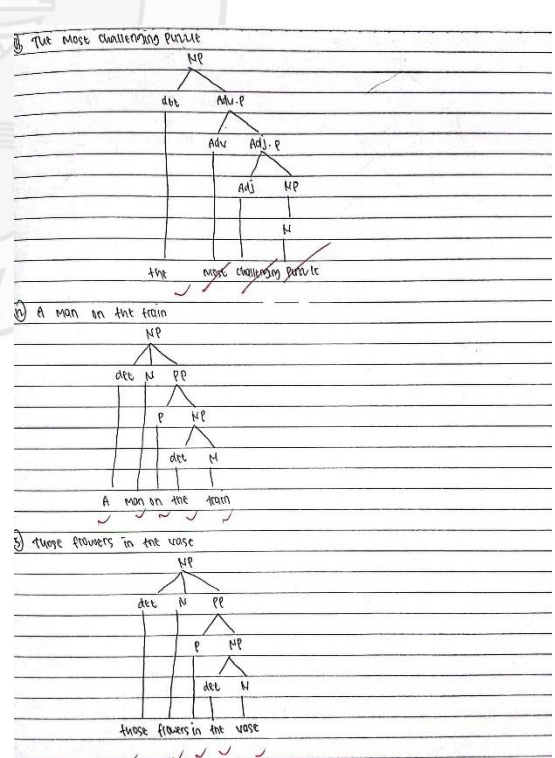 The Most challenging Puzzle
NP
det Adv.P
Adv Adj.P
Adj NP
N
the most challenging puzzle
A man on the train
NP
det N PP
P NP
det N
A man on the train
5) those flowers in the vase
NP
det N PP
P NP
det N
those flowers in the vase